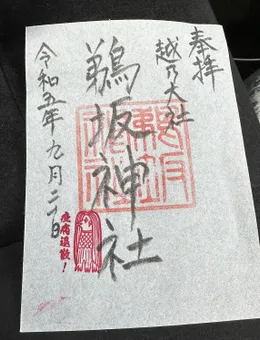 奉拝
越乃大社
鵜坂神社
令和五年九月二十日
疫病退散！